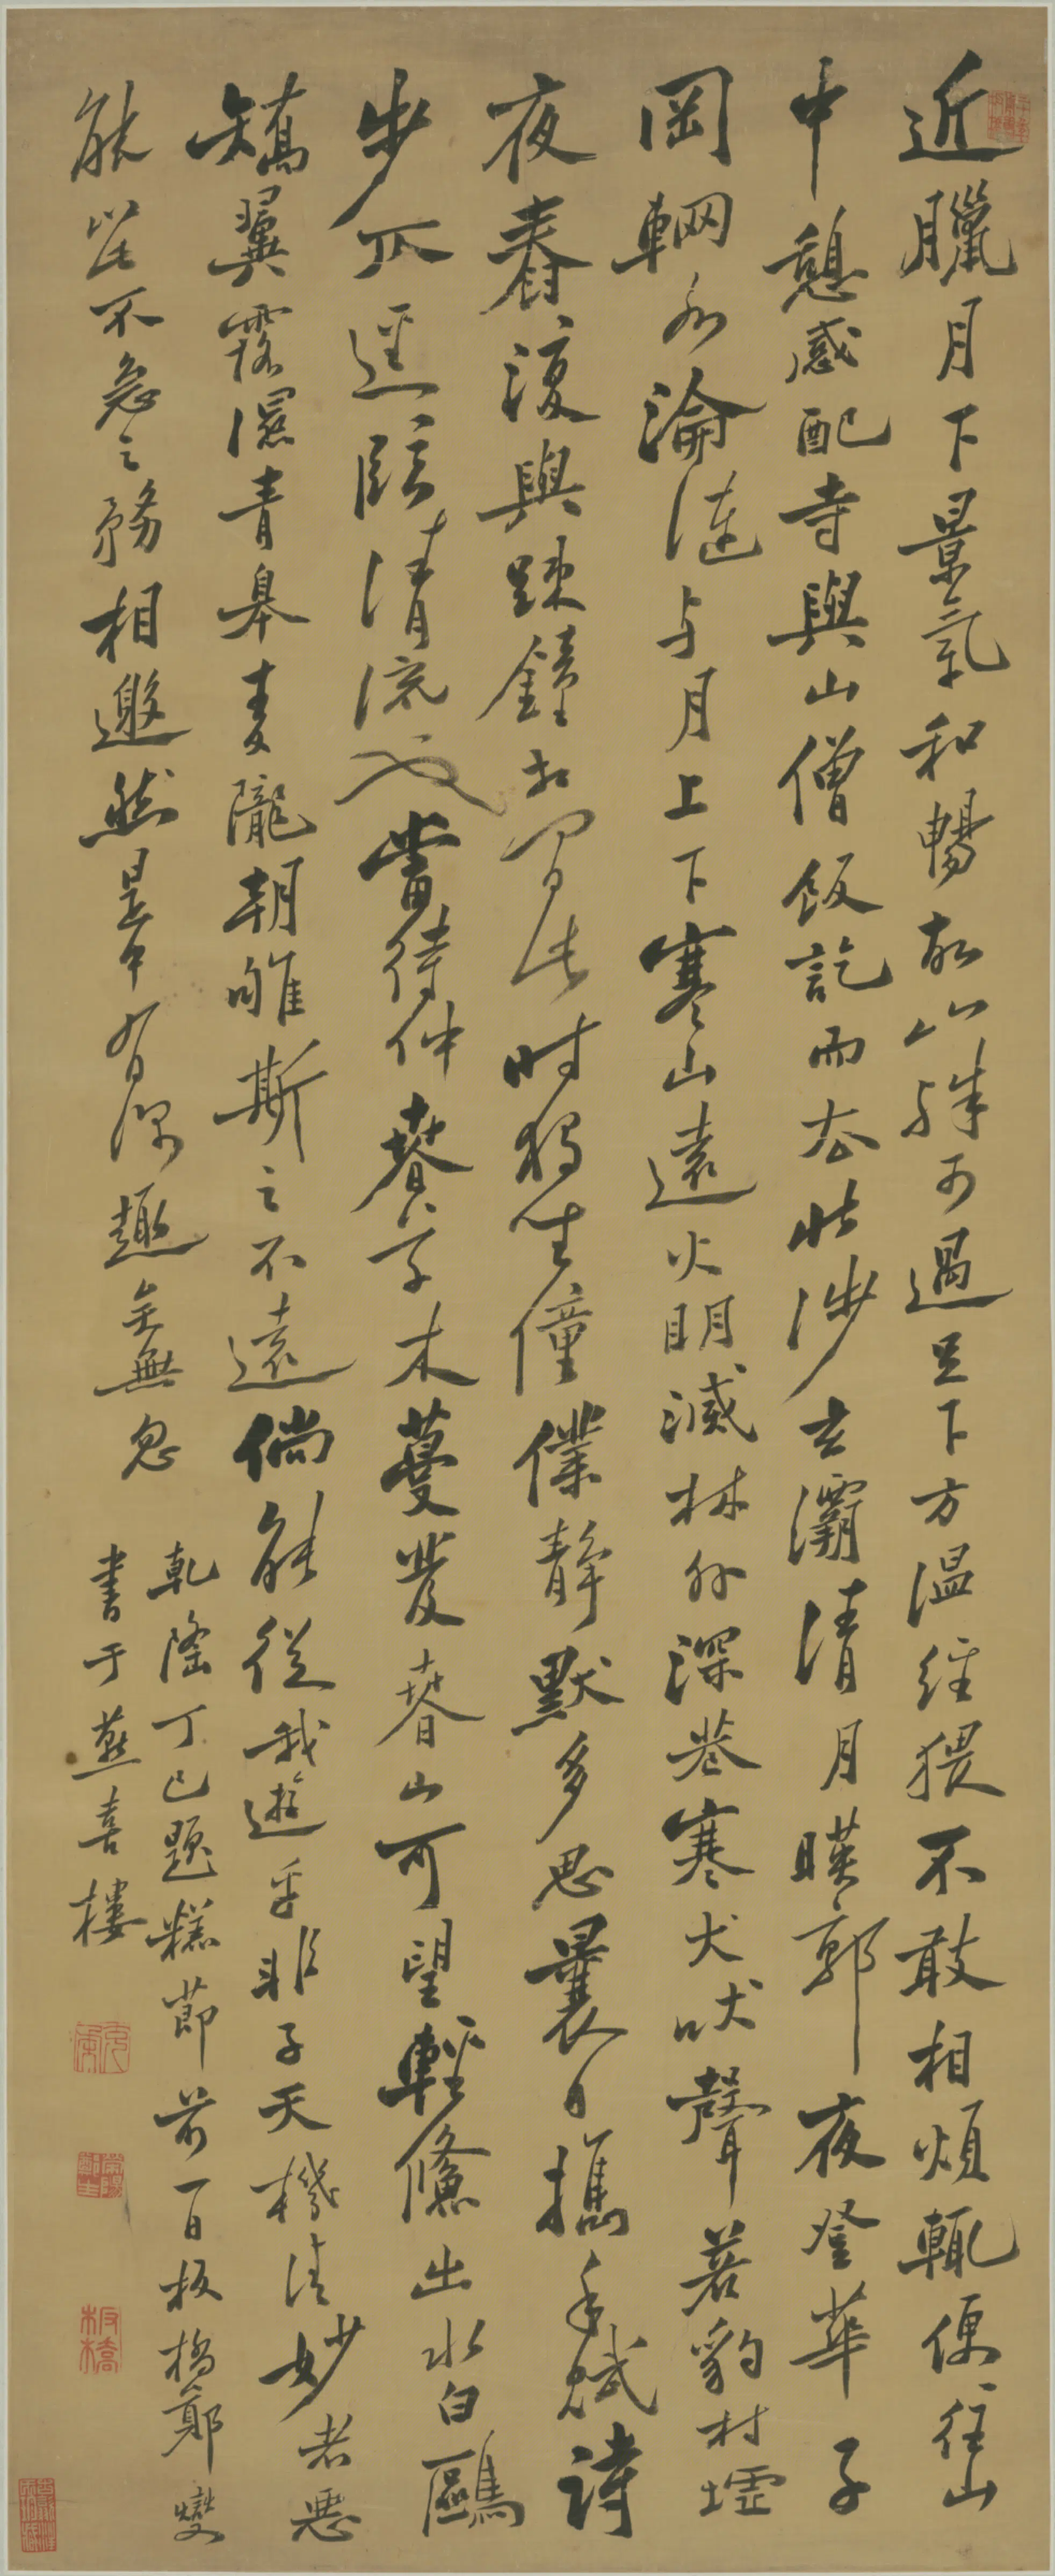 近臘月下景氣和暢故山殊可過足下方温經猥不敢相煩輒便往山
中憩感配寺與山僧飯訖而去北涉玄灞清月暎郭夜登華子
岡輞水淪漣与月上下寒山遠火明滅林外深巷寒犬吠聲若豹村墟
夜舂復與踈鐘相間此時獨坐僮僕靜默多思曩日攜手賦詩
步仄逕臨清流也當待仲春草木蔓發春山可望輕鯈出水白鷗
矯翼露濕青皋麥隴朝雊斯之不遠倘能從我遊乎非子天機清妙者惡
能以此不急之務相邀然是中有深趣矣無忽
乾隆丁巳題糕節前一日板橋鄭燮
書于燕喜樓
克柔
滎陽鄭生
板橋